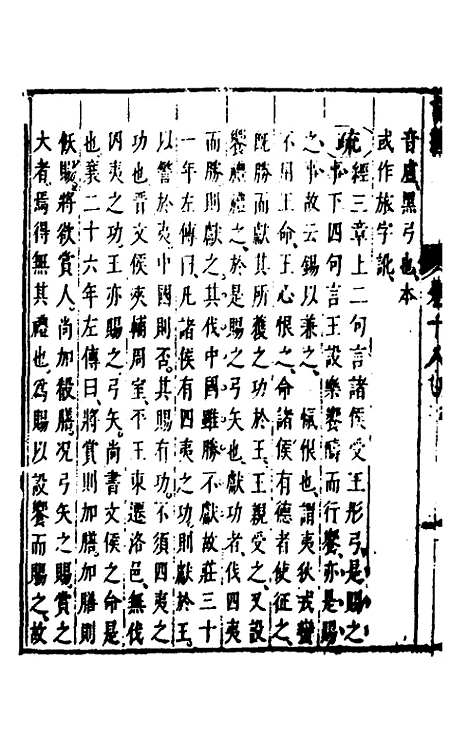 音盧黑弓也本
或作旅字訛
疏經三章上二句言諸侯受王彤弓是賜之
事下四句言王設樂饗醻而行饗亦是賜
之事故云錫以兼之　愾恨也謂夷狄戎蠻
不用王命王心恨之命諸侯有德者使征之
既勝而獻其所獲之功於王王親受之又設
饗禮禮之於是賜之弓矢也獻功者伐四夷
而勝則獻之其伐中國雖勝不獻故莊三十
一年左傳曰凡諸侯有四夷之功則獻於王
以警於夷中國則否其賜有功不須四夷之
功也晉文侯夾輔周室平王東遷洛邑無伐
四夷之功王亦賜之弓矢尚書文侯之命是
也襄二十六年左傳曰將賞則加膳加膳則
飫賜將欲賞人尚加殽膳況弓矢之賜賞之
大者焉得無其禮也為賜以設饗而賜之故